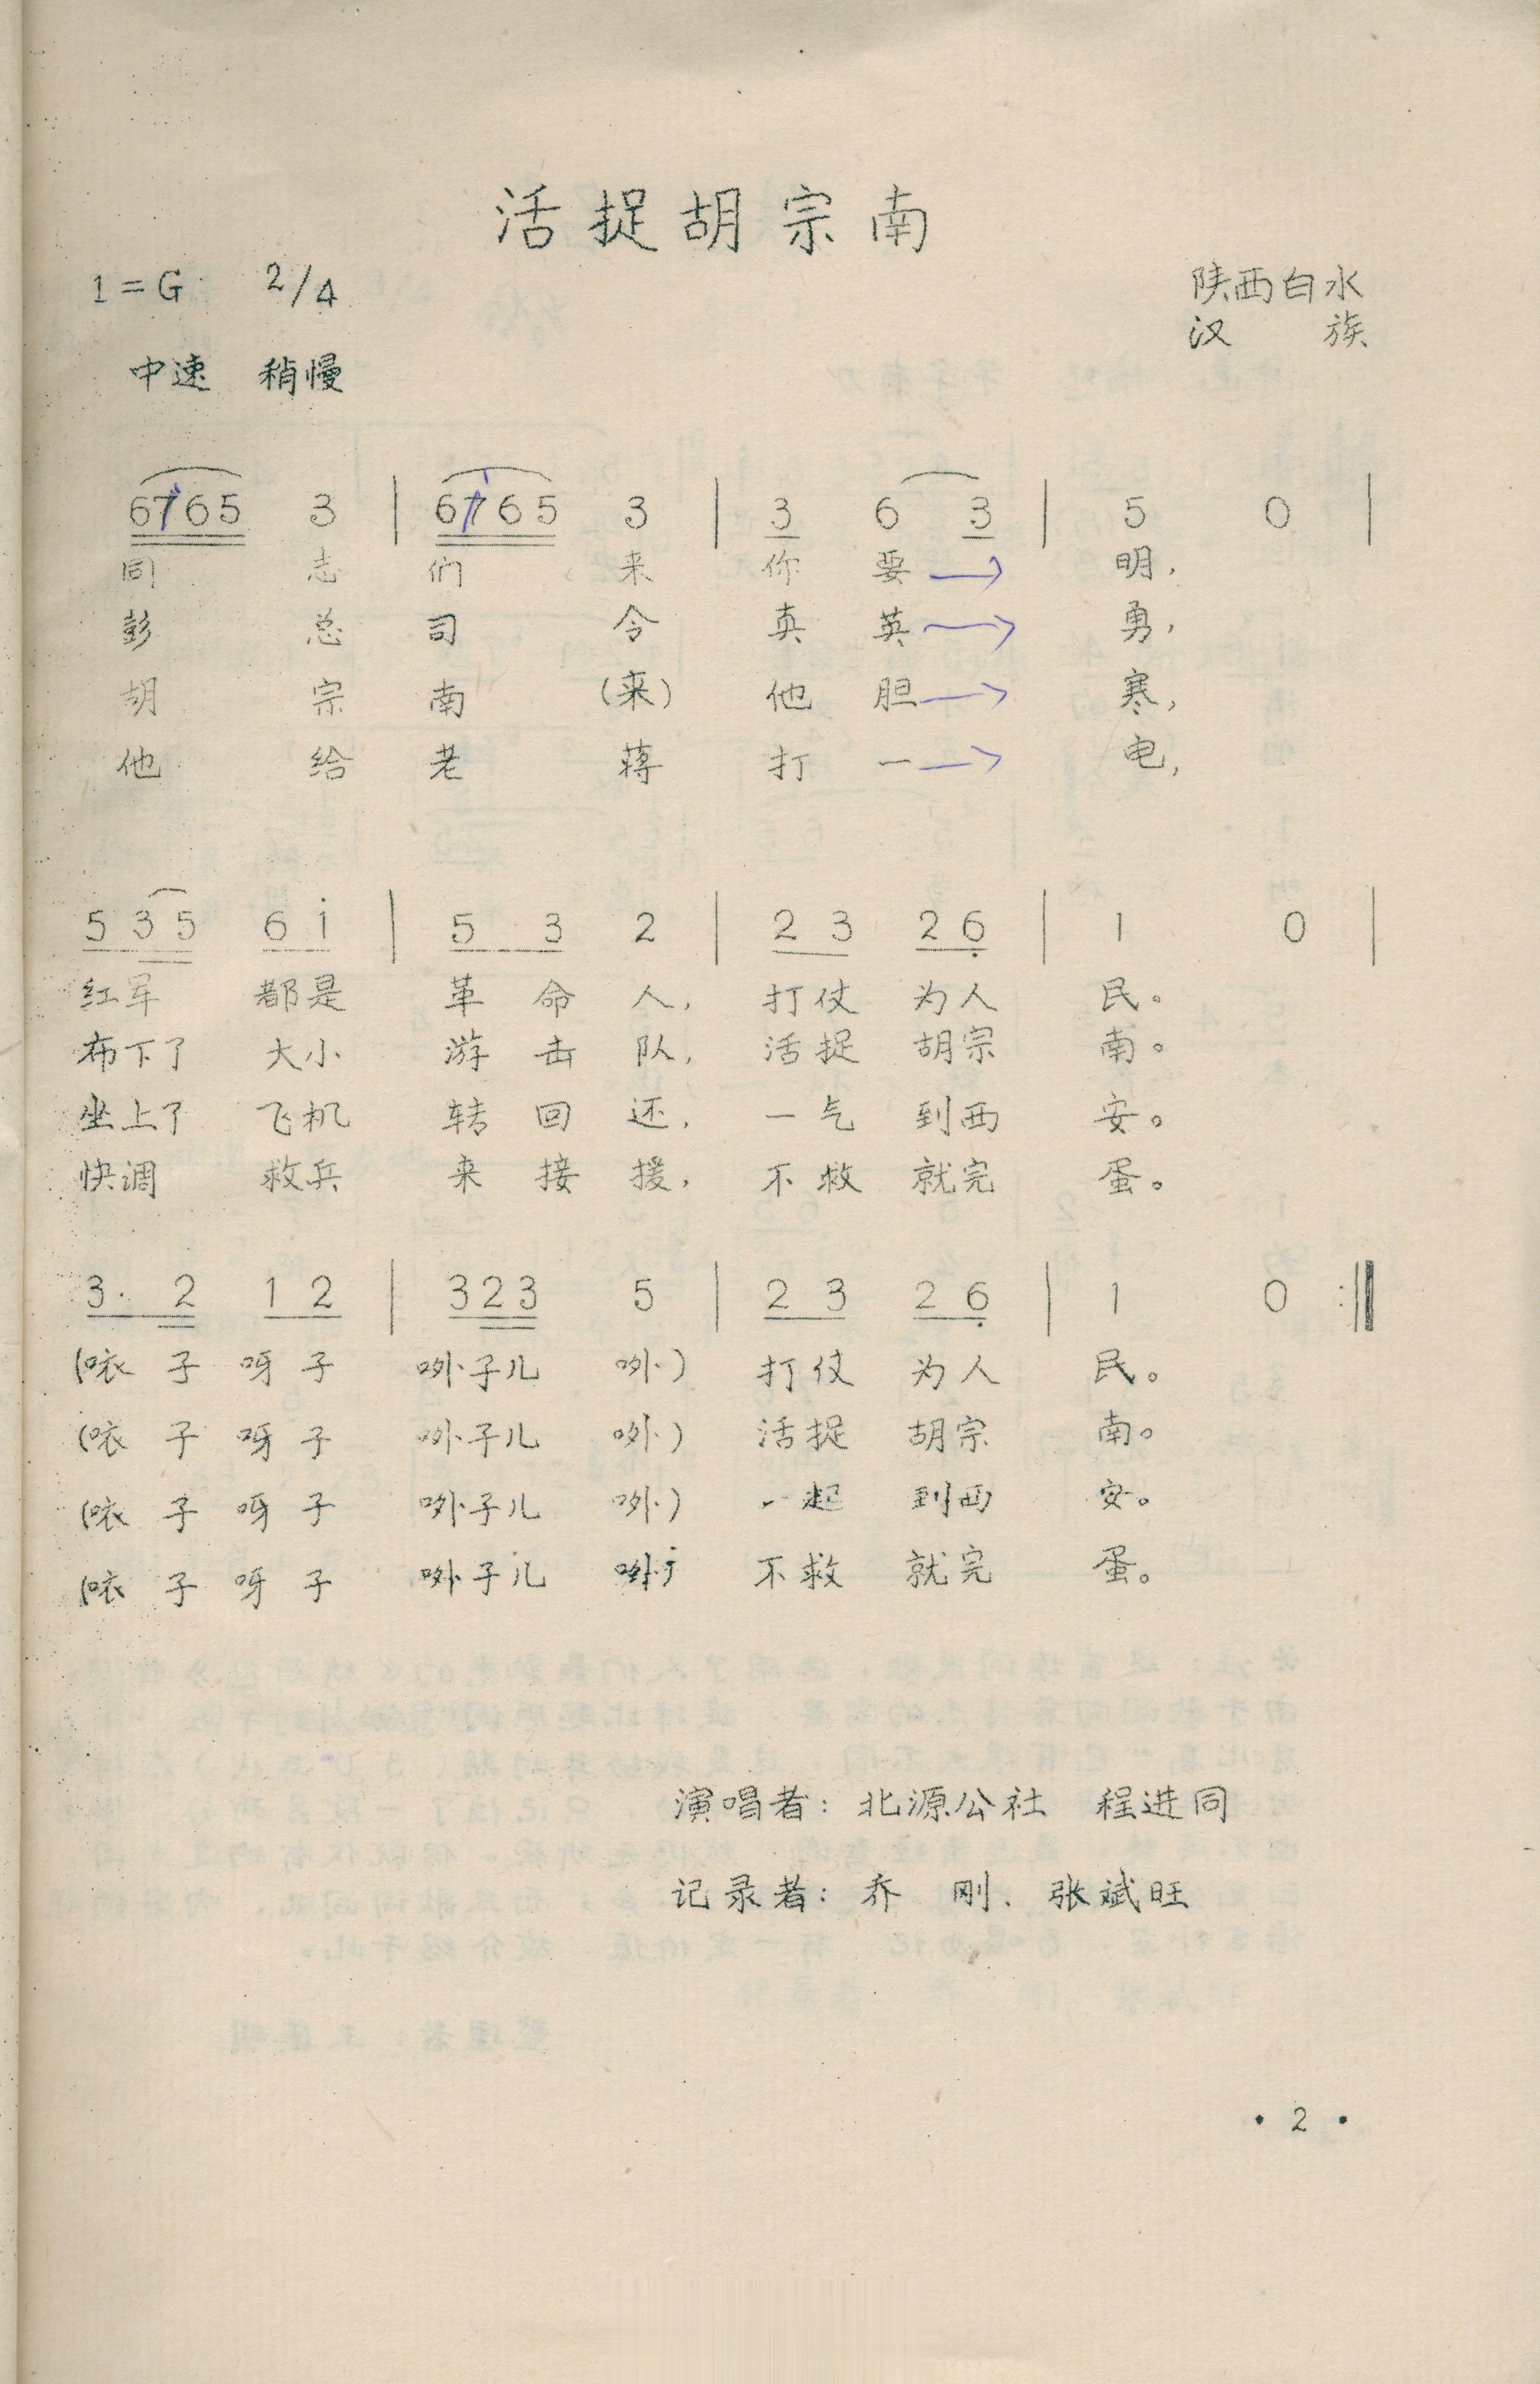 活捉胡宗南
1=G 2/4
陕西白水
汉 族
中速 稍慢
6765 3 | 6765 3 | 3 6 3 | 5 0 |
同 志 们 来 你 要 → 明,
彭 总 司 令 真 英 → 勇,
胡 宗 南 (来) 他 胆 → 寒,
他 给 老 蒋 打 一 → 电,
5 3 5 6 i | 5 3 2 | 2 3 2 6̣ | 1 0 |
红军 都是 革 命 人, 打仗 为人 民。
布下了 大小 游 击 队, 活捉 胡宗 南。
坐上了 飞机 转 回 还, 一气 到西 安。
快调 救兵 来 接 援, 不救 就完 蛋。
3. 2 1 2 | 323 5 | 2 3 2 6̣ | 1 0 :‖
(咴 子 呀 子 咿子儿 咿) 打仗 为人 民。
(咴 子 呀 子 咿子儿 咿) 活捉 胡宗 南。
(咴 子 呀 子 咿子儿 咿) 一起 到西 安。
(咴 子 呀 子 咿子儿 咿) 不救 就完 蛋。
演唱者: 北源公社 程进同
记录者: 乔 刚、张斌旺
· 2 ·